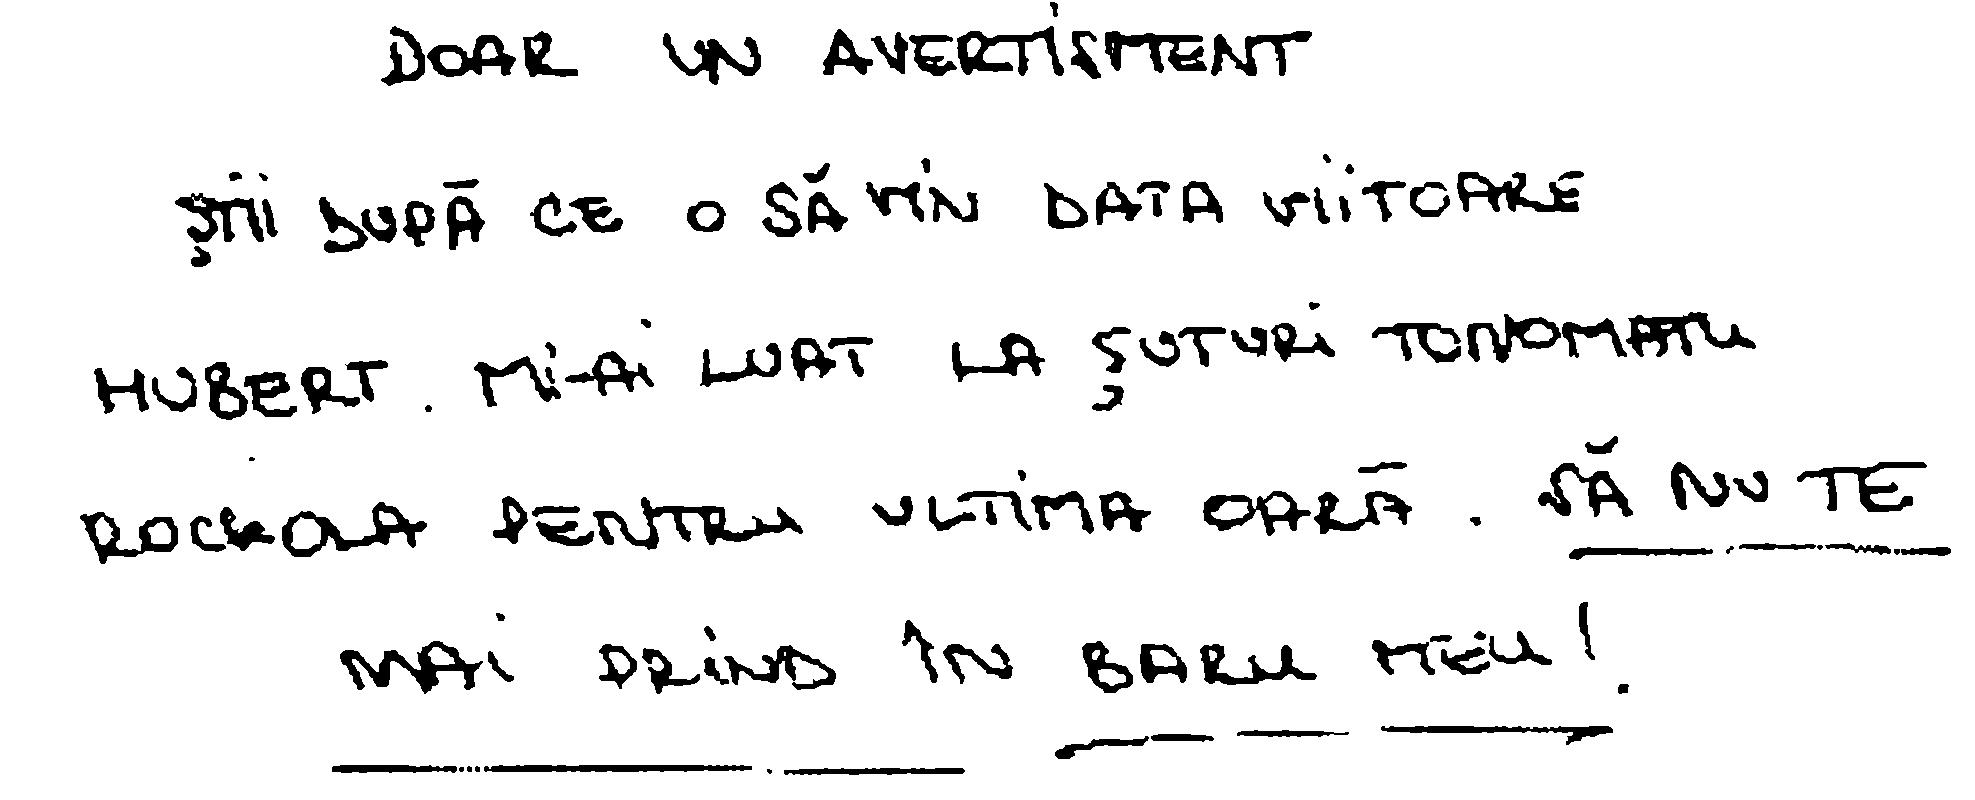 DOAR UN AVERTISMENT
ȘTII DUPĂ CE O SĂ VIN DATA VIITOARE
HUBERT. MI-AI LUAT LA ȘUTURI TONOMATU
ROCKOLA PENTRU ULTIMA OARĂ. SĂ NU TE
MAI PRIND ÎN BARU MEU!